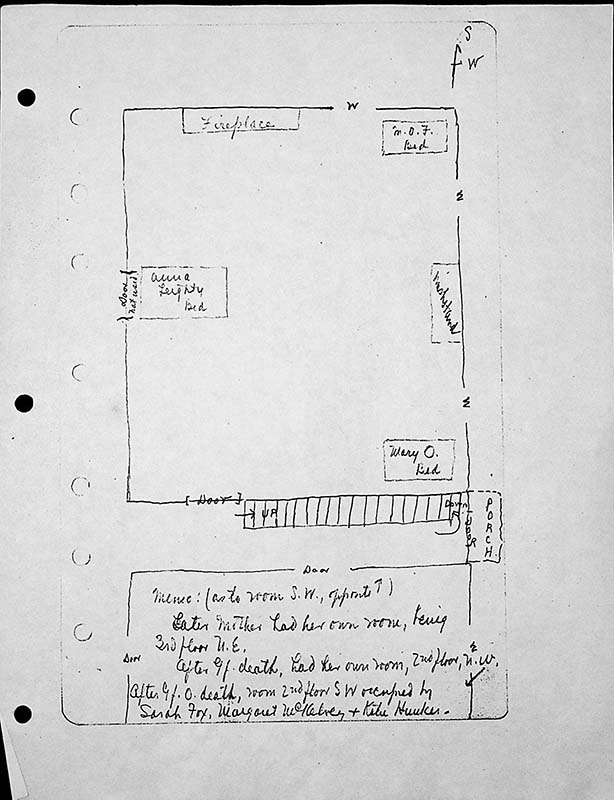 S
W
W
Fireplace
M.O.F.
Bed
W
Door
not used
Anna
Leighty
Bed
Washstand
W
Mary O.
Bed
Door
UP
Down
DOOR
PORCH
Door
Memo: (as to room S.W., opposite ↑)
Later Mother had her own room, being
3rd floor N.E.
Door
After Gf. death, had her own room, 2nd floor, N.W.
W
After Gf. O. death, room 2nd floor SW occupied by
Sarah Fox, Margaret McKelvey + Kate Hunker.